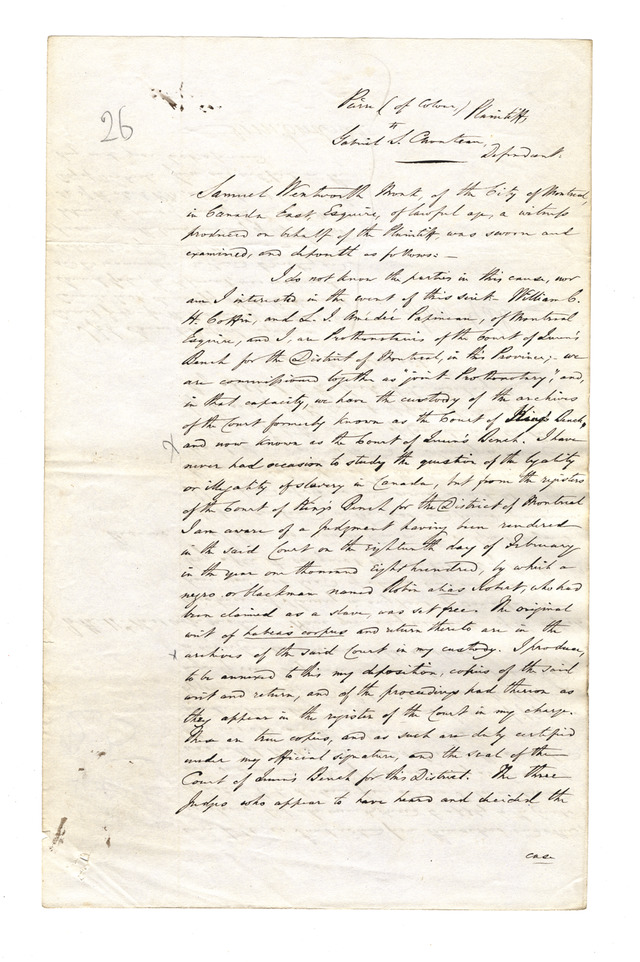 26
Pierre (of Colour,) Plaintiff,
vs
Gabriel S. Chouteau,
Defendant.
Samuel Wentworth Monk, of the City of Montreal,
in Canada East, Esquire, of lawful age, a witness
produced on behalf of the Plaintiff, was sworn and
examined, and deposeth as follows:—
I do not know the parties in this cause, nor
am I interested in the event of this suit. William C.
H. Coffin, and L. J. Amédée Papineau, of Montreal
Esquires, and I, are Prothonotaries of the Court of Queen's
Bench for the District of Montreal, in this Province;- we
are commissioned together as "joint Prothonotary", and,
in that capacity, we have the custody of the archives
of the Court formerly known as the Court of King's Bench,
X and now known as the Court of Queen's Bench. I have
never had occasion to study the question of the legality
or illegality of slavery in Canada, but from the registers
of the Court of King's Bench for the District of Montreal
I am aware of a judgment having been rendered
in the said Court on the Eighteenth day of February
in the year one thousand eight hundred, by which a
negro, or blackman named Robin alias Robert, who had
been claimed as a slave, was set free. The original
writ of habeas corpus and return thereto are in the
x archives of the said Court in my custody. I produce,
to be annexed to this my deposition, copies of the said
writ and return, and of the proceedings had thereon as
they appear in the register of the Court in my charge.
These are true copies, and as such are duly certified
under my official signature, and the seal of the
Court of Queen's Bench for this District. The three
Judges who appear to have heard and decided the
case